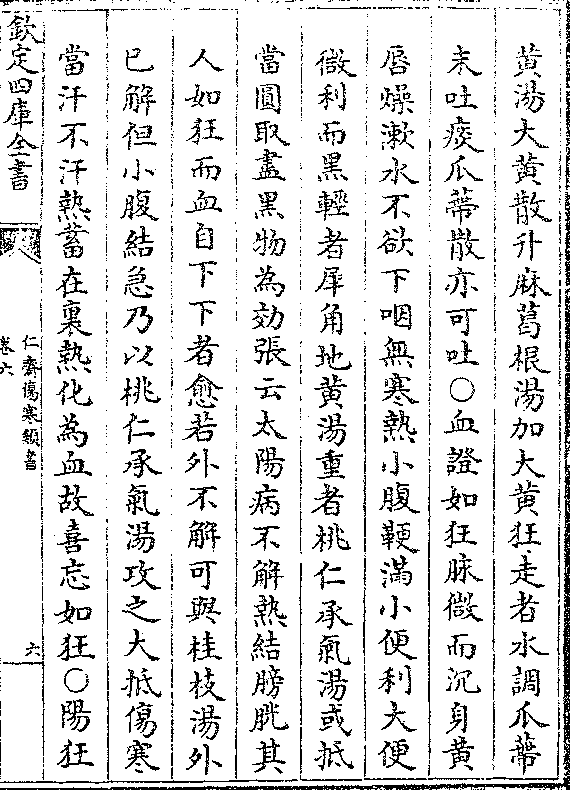 黄湯大黄散升麻葛根湯加大黄狂走者水調瓜蔕
末吐痰瓜蔕散亦可吐○血證如狂脉微而沉身黄
唇燥漱水不欲下咽無寒熱小腹鞕滿小便利大便
微利而黑輕者犀角地黄湯重者桃仁承氣湯或抵
當圓取盡黒物為効張云太陽病不解熱結膀胱其
人如狂而血自下下者愈若外不解可與桂枝湯外
已解但小腹結急乃以桃仁承氣湯攻之大抵傷寒
當汗不汗熱蓄在裏熱化為血故喜忘如狂○陽狂
欽定四庫全書
仁齋傷寒類書
卷六
六